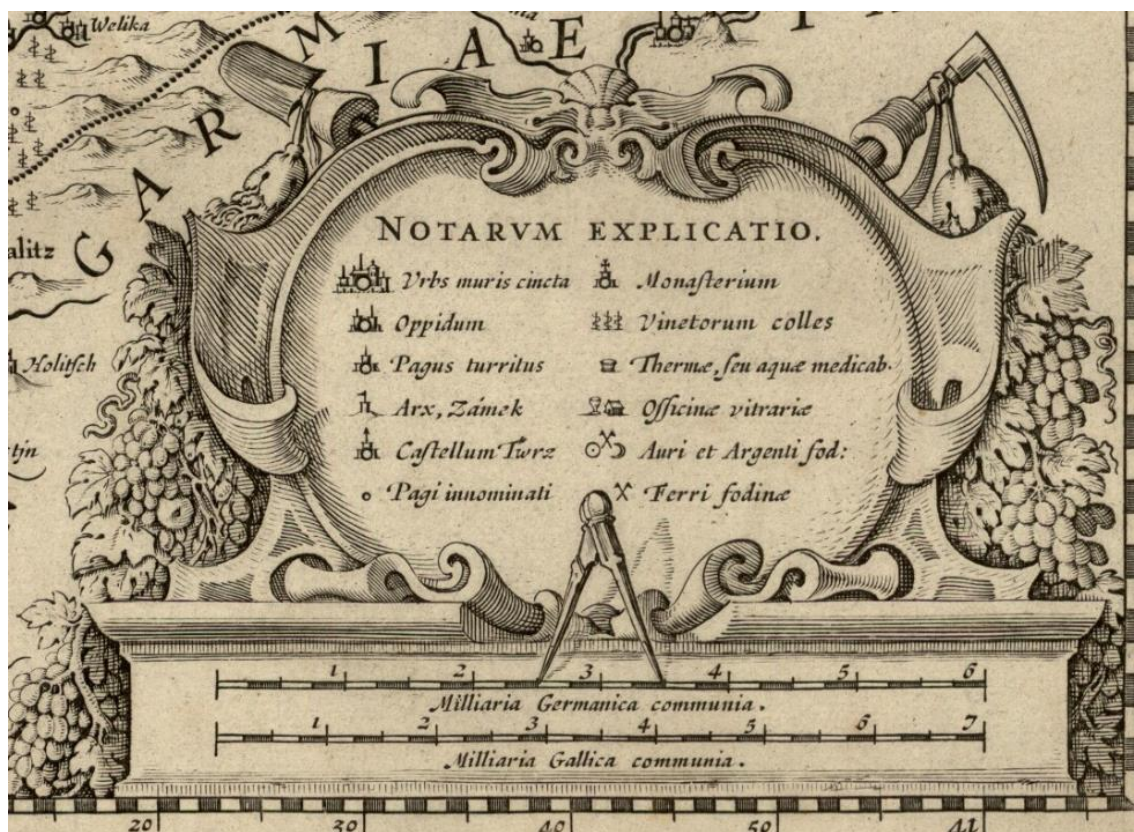 Welika
ARMIAE
alitz
G
Holitſch
NOTARVM EXPLICATIO.
Vrbs muris cincta
Oppidum
Pagus turritus
Arx, Zámek
Caſtellum Twrz
Pagi innominati
Monaſterium
Vinetorum colles
Thermæ, ſeu aquæ medicab.
Officinæ vitrariæ
Auri et Argenti fod:
Ferri fodinæ
1 2 3 4 5 6
Milliaria Germanica communia.
1 2 3 4 5 6 7
Milliaria Gallica communia.
20 30 40 50 41